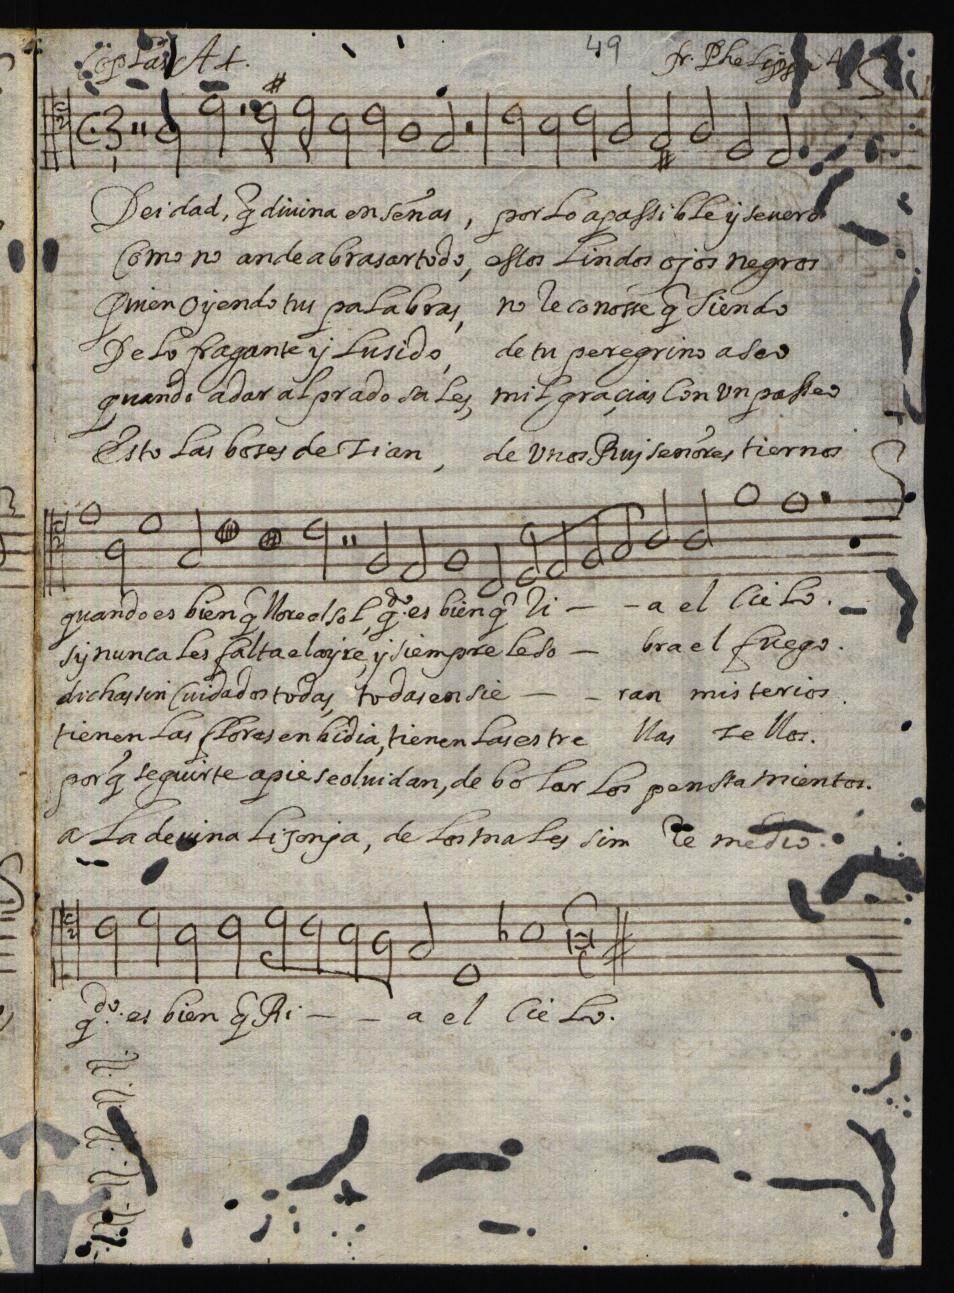 Coplas A 4. 49 fr. Phelippe
Deidad, q̃ diuina enseñas, por Lo apassible y seuero
Como no an de abrasar todo, essos Lindos ojos negros
Quien oyendo tus palabras, no Reconosse q̃ siendo
De Lo fragante y Lusido, de tu peregrino aseo
quando a dar al prado sales, mil graçias Con Vn passeo
Esto Las boses de Zian, de Vnos Ruyseñores tiernos
quando es bien q̃ llore el sol, q̃do. es bien q̃ Ri - - a el Cielo.
sy nunca les falta el ayre, y siempre le so - bra el fuego.
dichas sin Cuidados todas, todas ensie - - ran misterios.
tienen Las flores enbidia, tienen Las estre llas Zellos.
porq̃ seguirte a pie se oluidan, de bolar Los pensamientos.
a La deuina Lisonja, de Los males sim Re medio.
q̃do. es bien q̃ Ri - - a el Cielo.